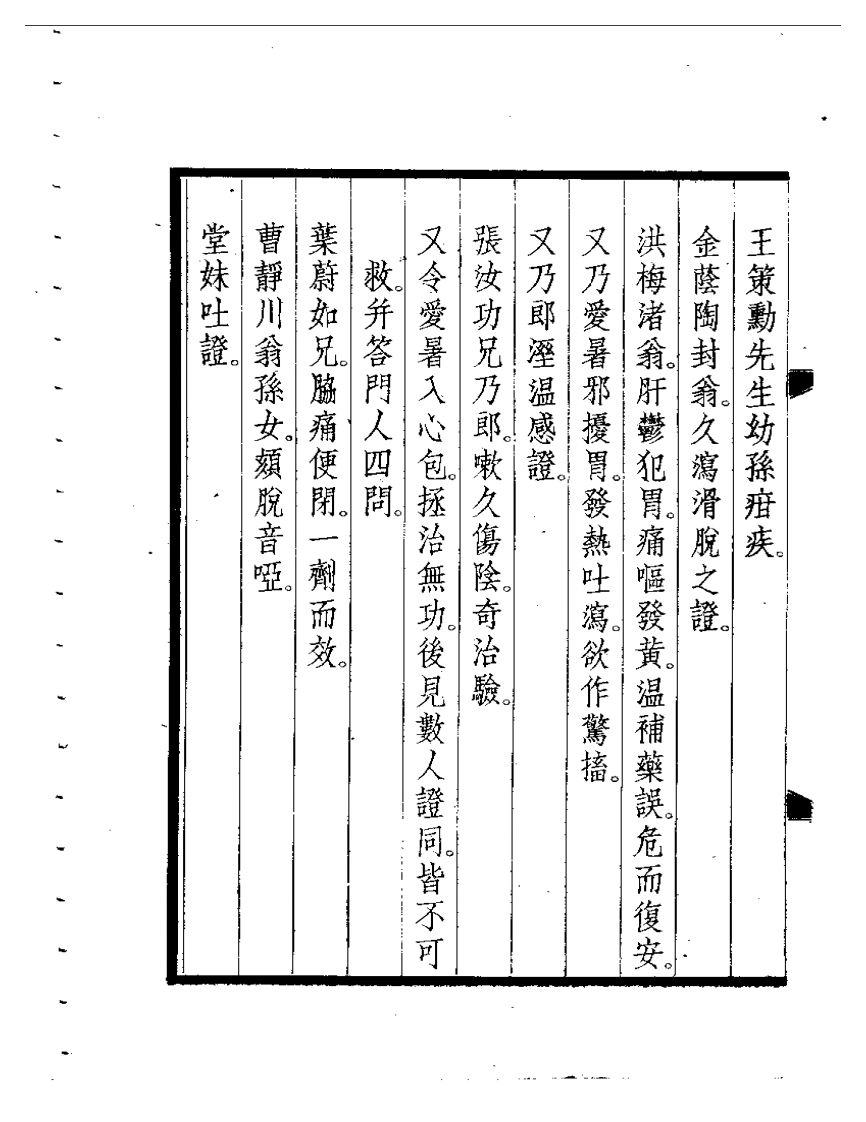 王策勳先生幼孫疳疾。
金蔭陶封翁。久瀉滑脫之證。
洪梅渚翁。肝鬱犯胃。痛嘔發黃。温補藥誤。危而復安。
又乃愛暑邪擾胃。發熱吐瀉。欲作驚搐。
又乃郎溼温感證。
張汝功兄乃郎。嗽久傷陰。奇治驗。
又令愛暑入心包。拯治無功。後見數人證同。皆不可
救。并答門人四問。
葉蔚如兄。脇痛便閉。一劑而效。
曹靜川翁孫女。頦脫音啞。
堂妹吐證。